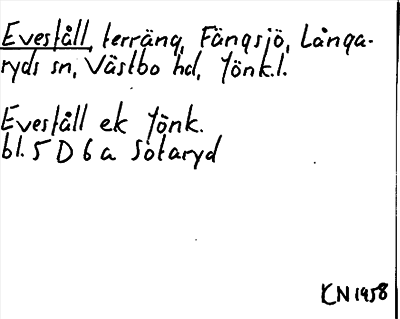 Eveståll, terräng, Fängsjö, Långa-
ryds sn, Västbo hd, Jönk.l.
Eveståll ek Jönk.
bl. 5 D 6 a Sotaryd
KN 1958